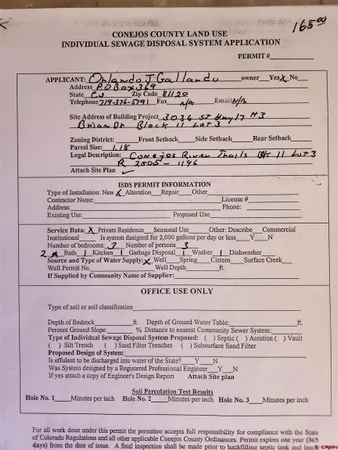 165.00
CONEJOS COUNTY LAND USE
INDIVIDUAL SEWAGE DISPOSAL SYSTEM APPLICATION
PERMIT #
APPLICANT: Orlando J Gallardo owner Yes X No
Address P.O Box 369
State Co Zip Code 81120
Telephone 719-376-5791 Fax n/a Email N/A
Site Address of Building Project 3036 St Hwy 17 #3
Brian Dr Block 11 Lot 3
Zoning District: Front Setback Side Setback Rear Setback
Parcel Size: 1.18
Legal Description: Conejos River Trails Blk 11 Lot 3
R 2005-1146
Attach Site Plan ✓
ISDS PERMIT INFORMATION
Type of Installation: New X Alteration Repair Other
Contractor Name: License #
Address: Phone:
Existing Use: Proposed Use
Service Data: X Private Residence Seasonal Use Other: Describe Commercial
Institutional Is system designed for 2,000 gallons per day or less Y N
Number of bedrooms: 3 Number of persons 3
2 Bath Kitchen Garbage Disposal Washer Dishwasher
Source and Type of Water Supply: X Well Spring Cistern Surface Creek
Well Permit No. Well Depth ft.
If Supplied by Community Name of Supplier:
OFFICE USE ONLY
Type of soil or soil classification
Depth of Bedrock ft. Depth of Ground Water Table: ft.
Percent Ground Slope: % Distance to nearest Community Sewer System:
Type of Individual Sewage Disposal System Proposed: ( ) Septic ( ) Aeration ( ) Vault
( ) Slit Trench ( ) Sand Filter Trenches ( ) Subsurface Sand Filter
Proposed Design of System:
Is effluent to be discharged into water of the State? Y N
Was System designed by a Registered Professional Engineer Y N
If yes attach a copy of Engineer's Design Report Attach Site plan
Soil Percolation Test Results
Hole No. 1 Minutes per inch Hole No. 2 Minutes per inch Hole No. 3 Minutes per inch
For all work done under this permit the permittee accepts full responsibility for compliance with the State
of Colorado Regulations and all other applicable Conejos County Ordinances. Permit expires one year (365
days) from the date of issue. A final inspection shall be made prior to backfilling septic tank and leach